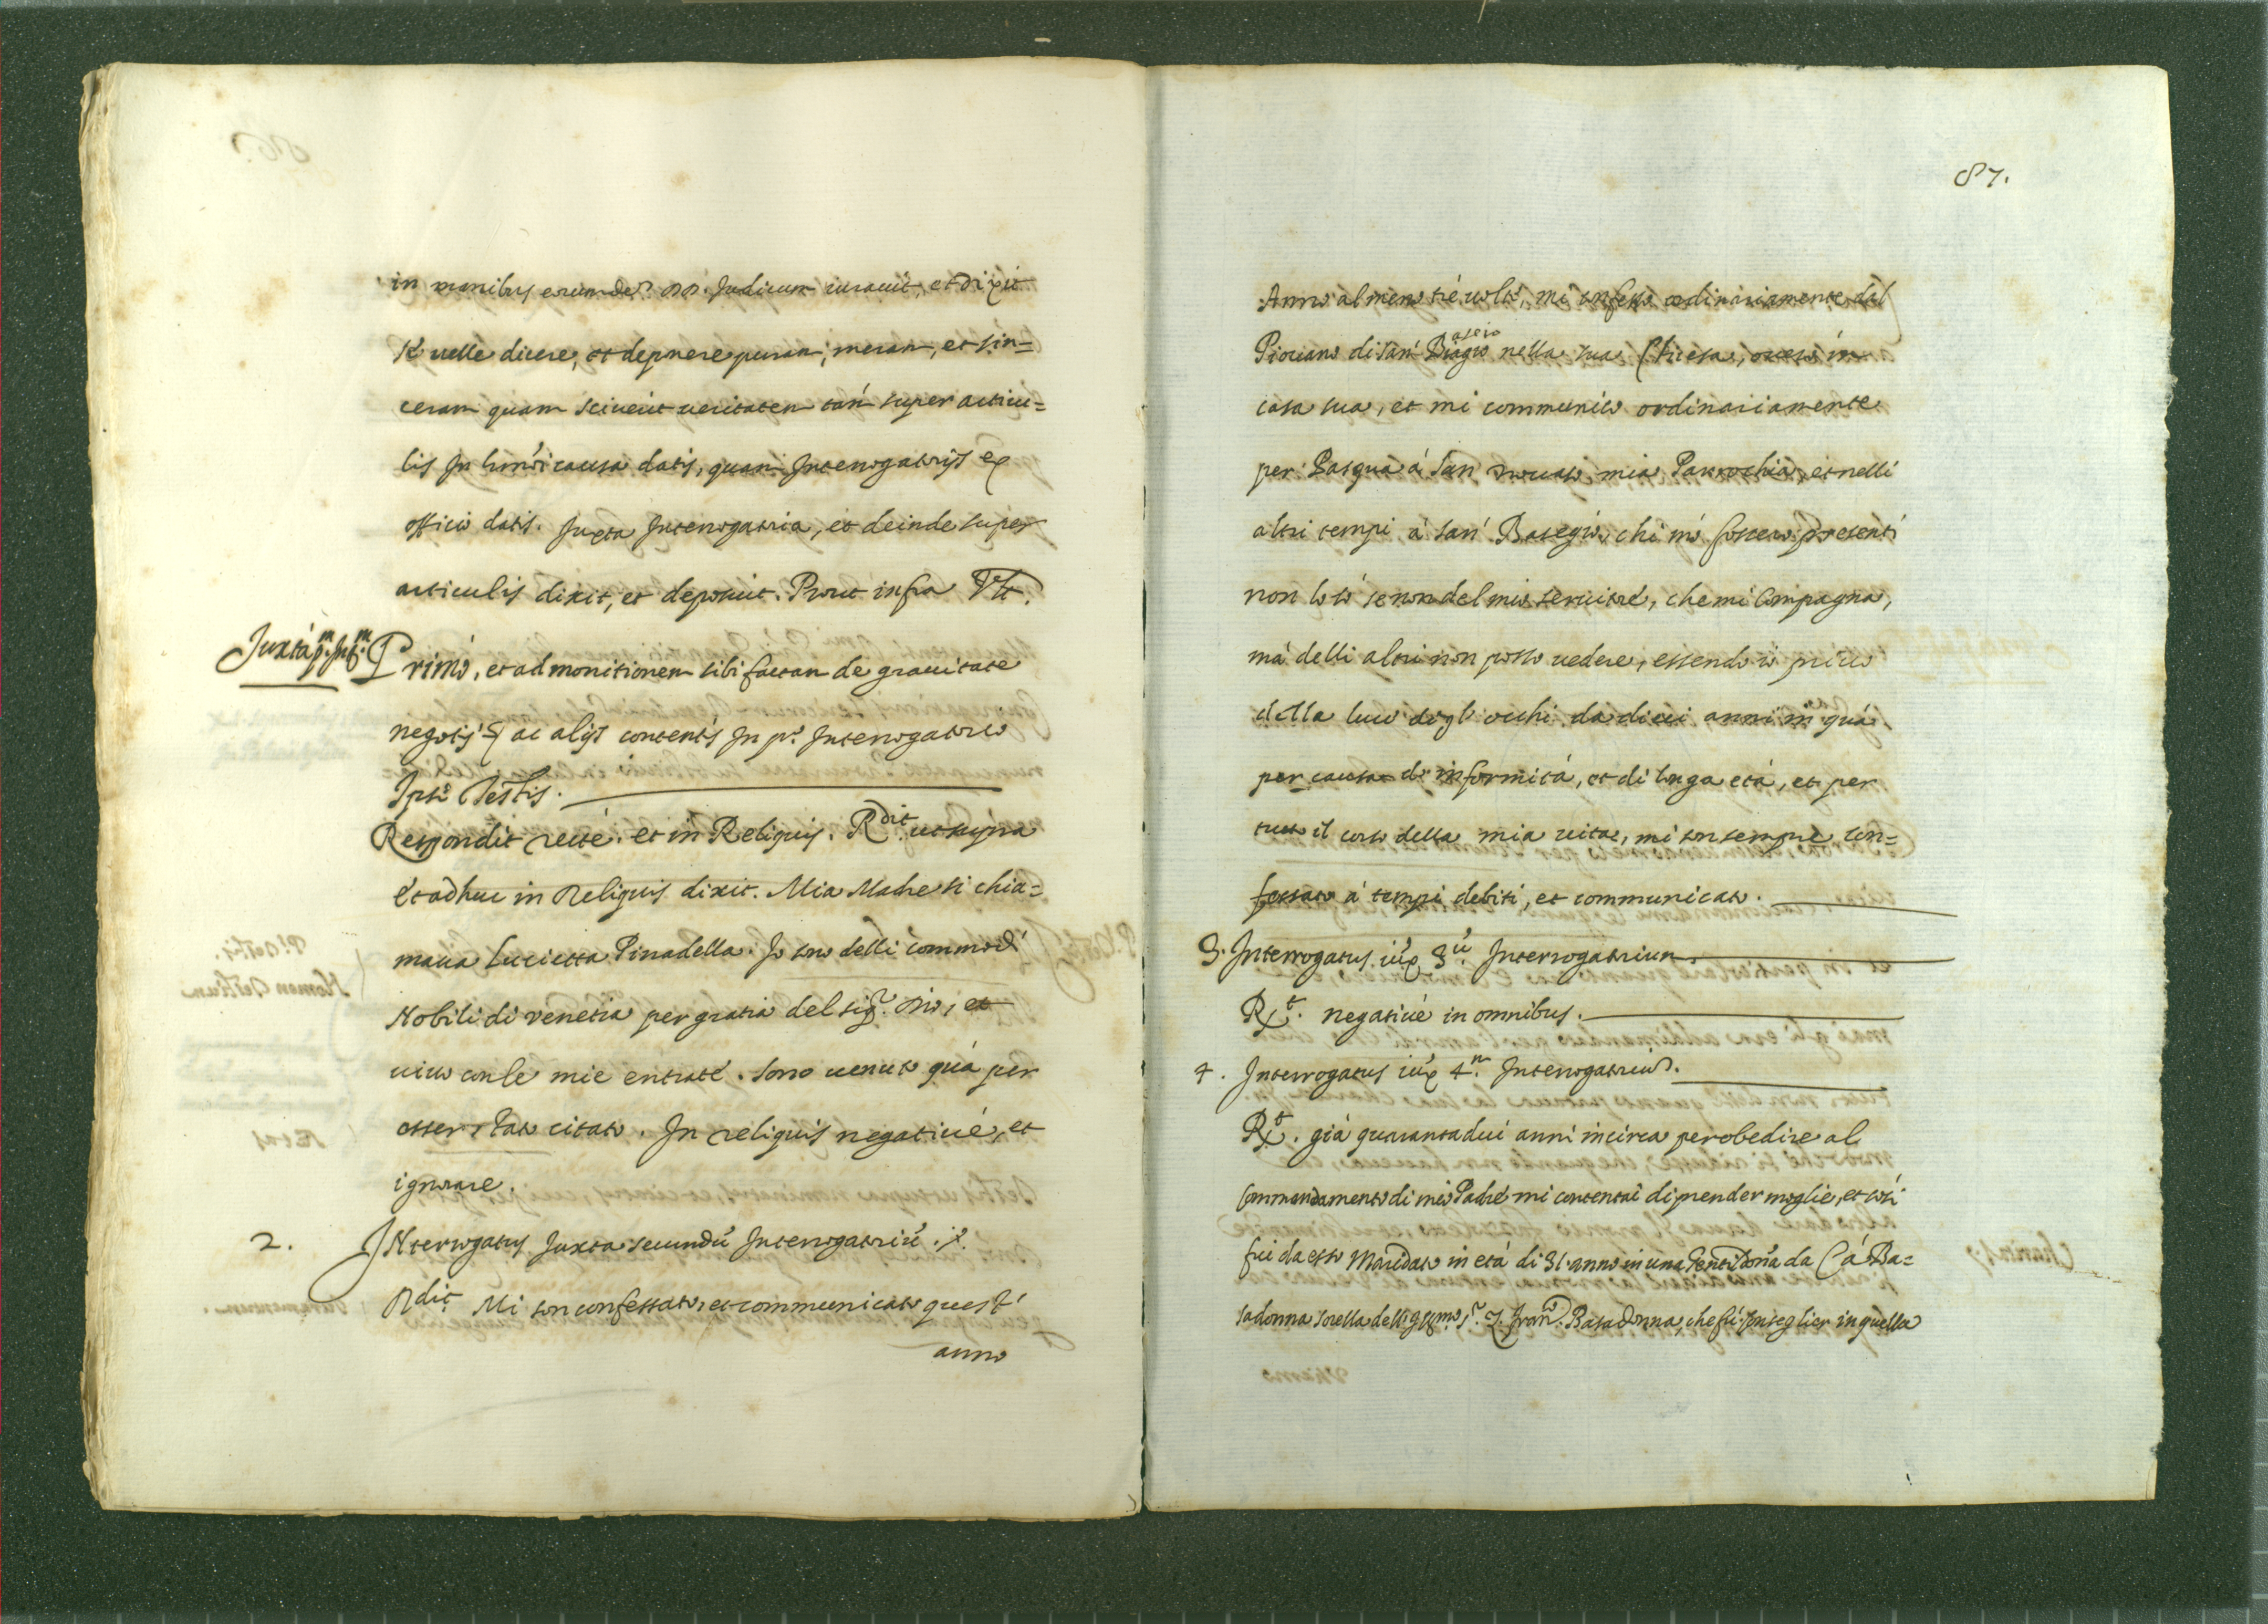 in manibus eorumdem DD. Judicum iurauit, et dixit
se uelle dicere, et deponere puram, meram, et sin=
ceram quam sciuerit ueritatem tam super articu=
lis in causa datis, quam Interrogatorijs ex
officio datis. Juxta Interrogatoria, et deinde super
articulis dixit, et deposuit. Prout infra Vt.
Juxta p.m Int.m Primo, et admonitionem sibi factam de grauitate
negotij ac alijs contentis In p.o Interrogatorio
Ipse Testis.
Respondit recte. et in Reliquis. Rdit ut supra
Et adhuc in Reliquis dixit. Mia Madre si chia=
maua Lucietta Pinadella. Io sono delli commodi
Nobili di Venetia per gratia del sig.r Dio, et
uiuo con le mie entrate. Sono uenuto quà per
esser stato citato. In reliquis negatiué, et
ignorare.
2. Interrogatus Juxta secundũ Interrogatoriũ.
Rdit. Mi son confessato, et communicato quest'
anno
87.
Anno almeno tré uolte, mi confesso ordinariamente dal
Piouano di San Biagio nella sua Chiesa, ouero in
casa sua, et mi communico ordinariamente
per Pasqua à San mia Parrochia, et nelli
altri tempi à San Basegio, chi mi fossero presenti
non lo so se non del mio seruitore, che mi Compagna,
mà delli altri non posso uedere, essendo io priuo
della luce degl' occhi da dieci anni in quà
per causa di infermità, et di longa età, et per
tutto il corso della mia uita, mi son sempre con=
fessato à tempi debiti, et communicato.
3. Interrogatus iux 3ũ Interrogatorium.
Rt. negatiué in omnibus.
4. Interrogatus iux 4.m Interrogatoriũ.
Rt. già quarantadui anni incirca per obedire al
Commandamento di mio Padre mi contentai di prender moglie, et così
fui da esso Maridato in età di 31. anno in una Gentildona da Cà Ba=
sadonna sorella dell' s.r Z. Franc.o Basadonna, che fù Conseglier in quella